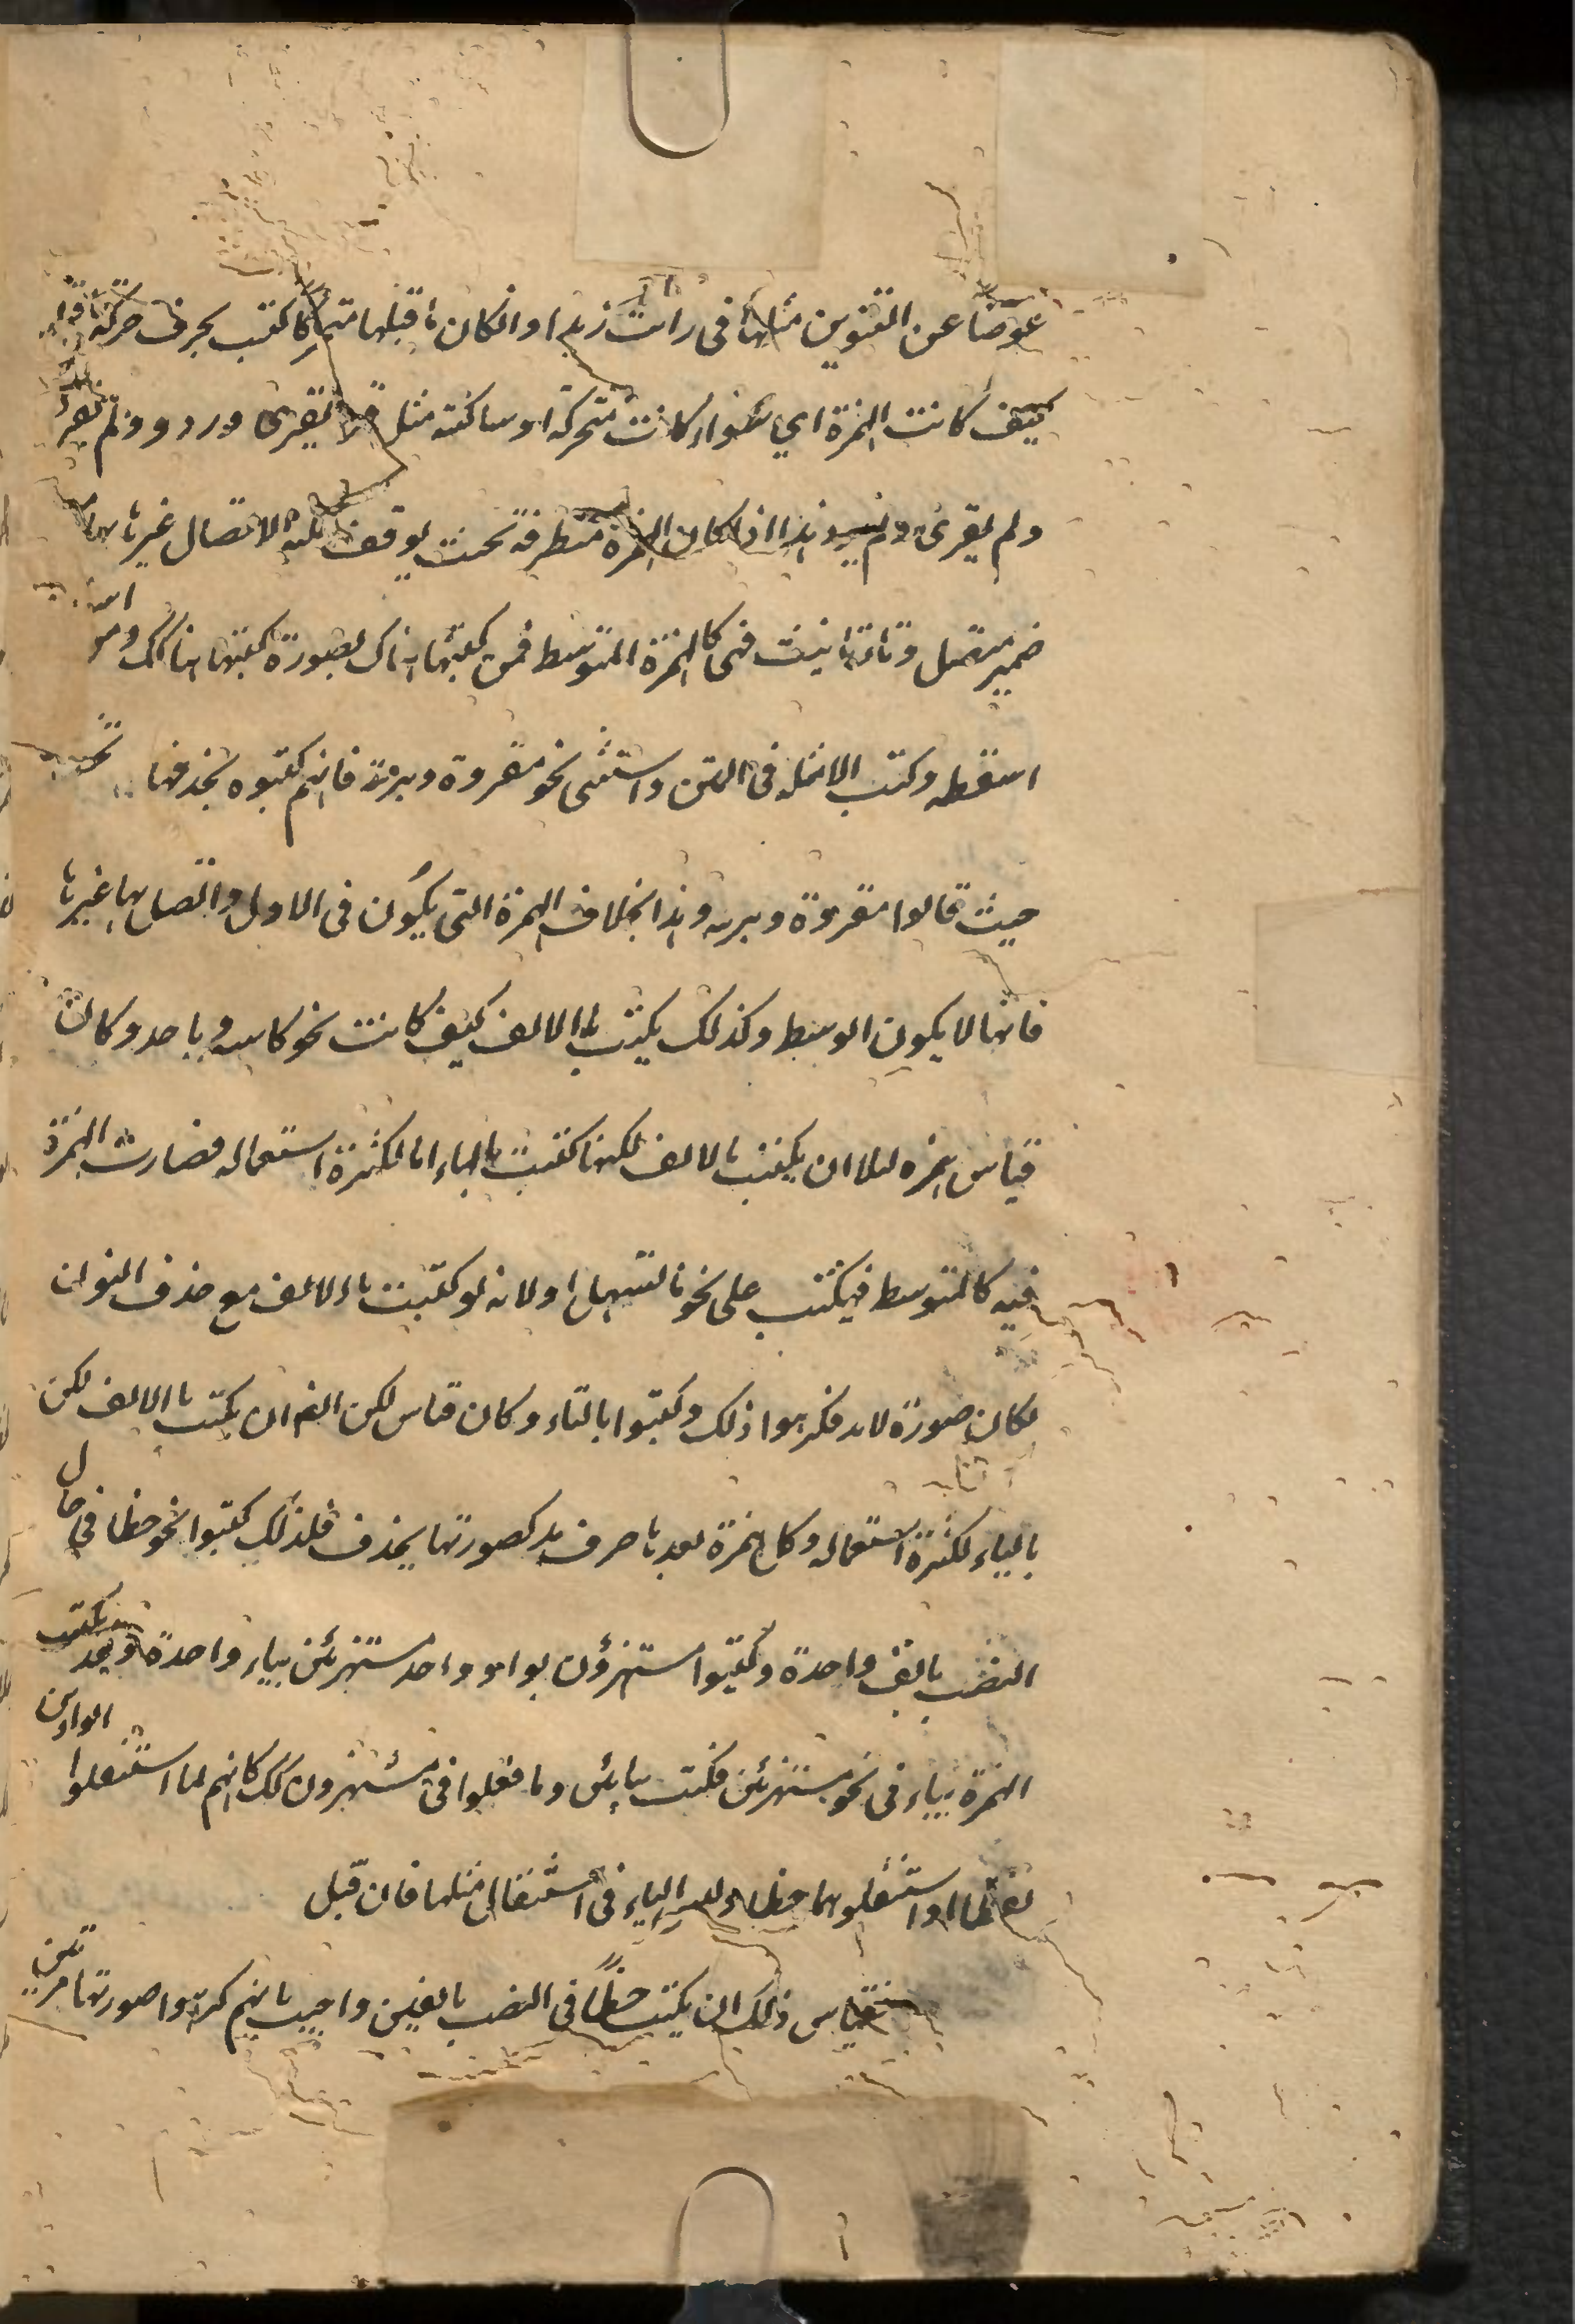 عوضا عن التنوين مثلها فى رايت زيدا وانكان ما قبلها متحركا كتب بحرف حركة ما قبلها
كيف كانت الهمزة اي سواء كانت متحركة او ساكنة مثل قرا يقرئ وردؤ ولم يقرأ
ولم يقرئ ولم يردؤ هذا اذا كان الهمزة متطرفة بحيث يوقف عليه لاتصال غيرها بها من
ضمير متصل وتاء تانيث فهى كالهمزة المتوسط فمن كتبها هناك بصورة كتبها هنا كك ومن
اسقطه وكتب الامثله فى المتن واستثنى نحو مقروة وبرية فانهم كتبوه بحذفها
حيث قالوا مقروة وبريه وهذا بخلاف الهمزة التى يكون فى الاول واتصل بها غيرها
فانها لا يكون الوسط وكذلك يكتب بالالف كيف كانت نحو كاسد وباحد وكان
قياس همزه لئلا ان يكتب بالالف لكنها كتبت بالياء اما لكثرة استعماله فصارت الهمزة
فيه كالمتوسط فيكتب على نحو تسهيل او لانه لو كتبت بالالف مع حذف النون
لكان صورة لالا فكرهوا ذلك وكتبوا بالياء وكان قياس لكن الفم ان يكتب بالالف لكن
بالياء لكثرة استعماله وكل همزة بعدها حرف مد كصورتها يحذف فلذلك كتبوا نحو خطا فى حال
النصب بالف واحدة وكتبوا مستهزؤن بواو واحد مستهزئن بياء واحدة وقد يكتب
الهمزة بياء فى نحو مستهزئن فكتبت بيائين وما فعلوا فى مستهزون كك كانهم لما استثقلوا الواوين
لفظا استثقلوهما خطا وليس الياء فى استثقال مثلها فان قيل
فقياس ذلك ان يكتب خطأ فى النصب بالفين واجيب بانهم كرهوا صورتها مرتين